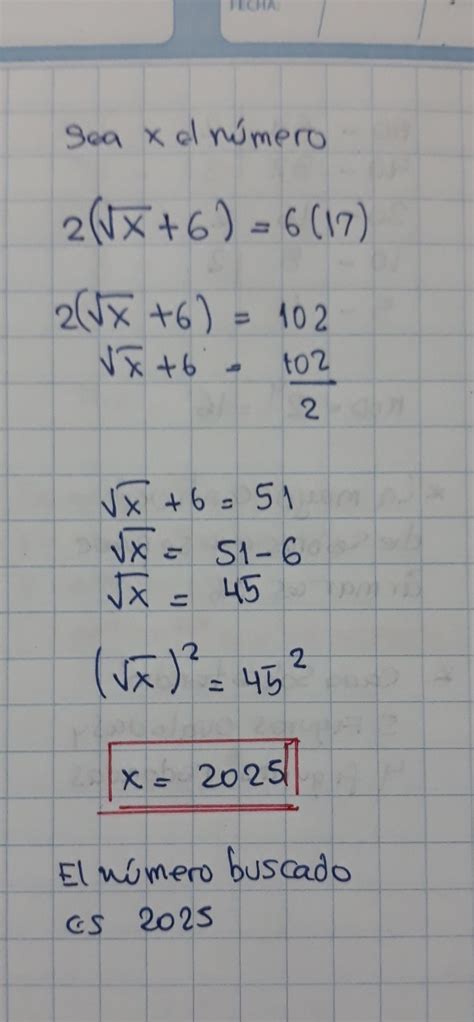 FECHA
Sea x el número
2(√x + 6) = 6(17)
2(√x + 6) = 102
√x + 6 = 102/2
√x + 6 = 51
√x = 51 - 6
√x = 45
(√x)² = 45²
x = 2025
El número buscado
es 2025